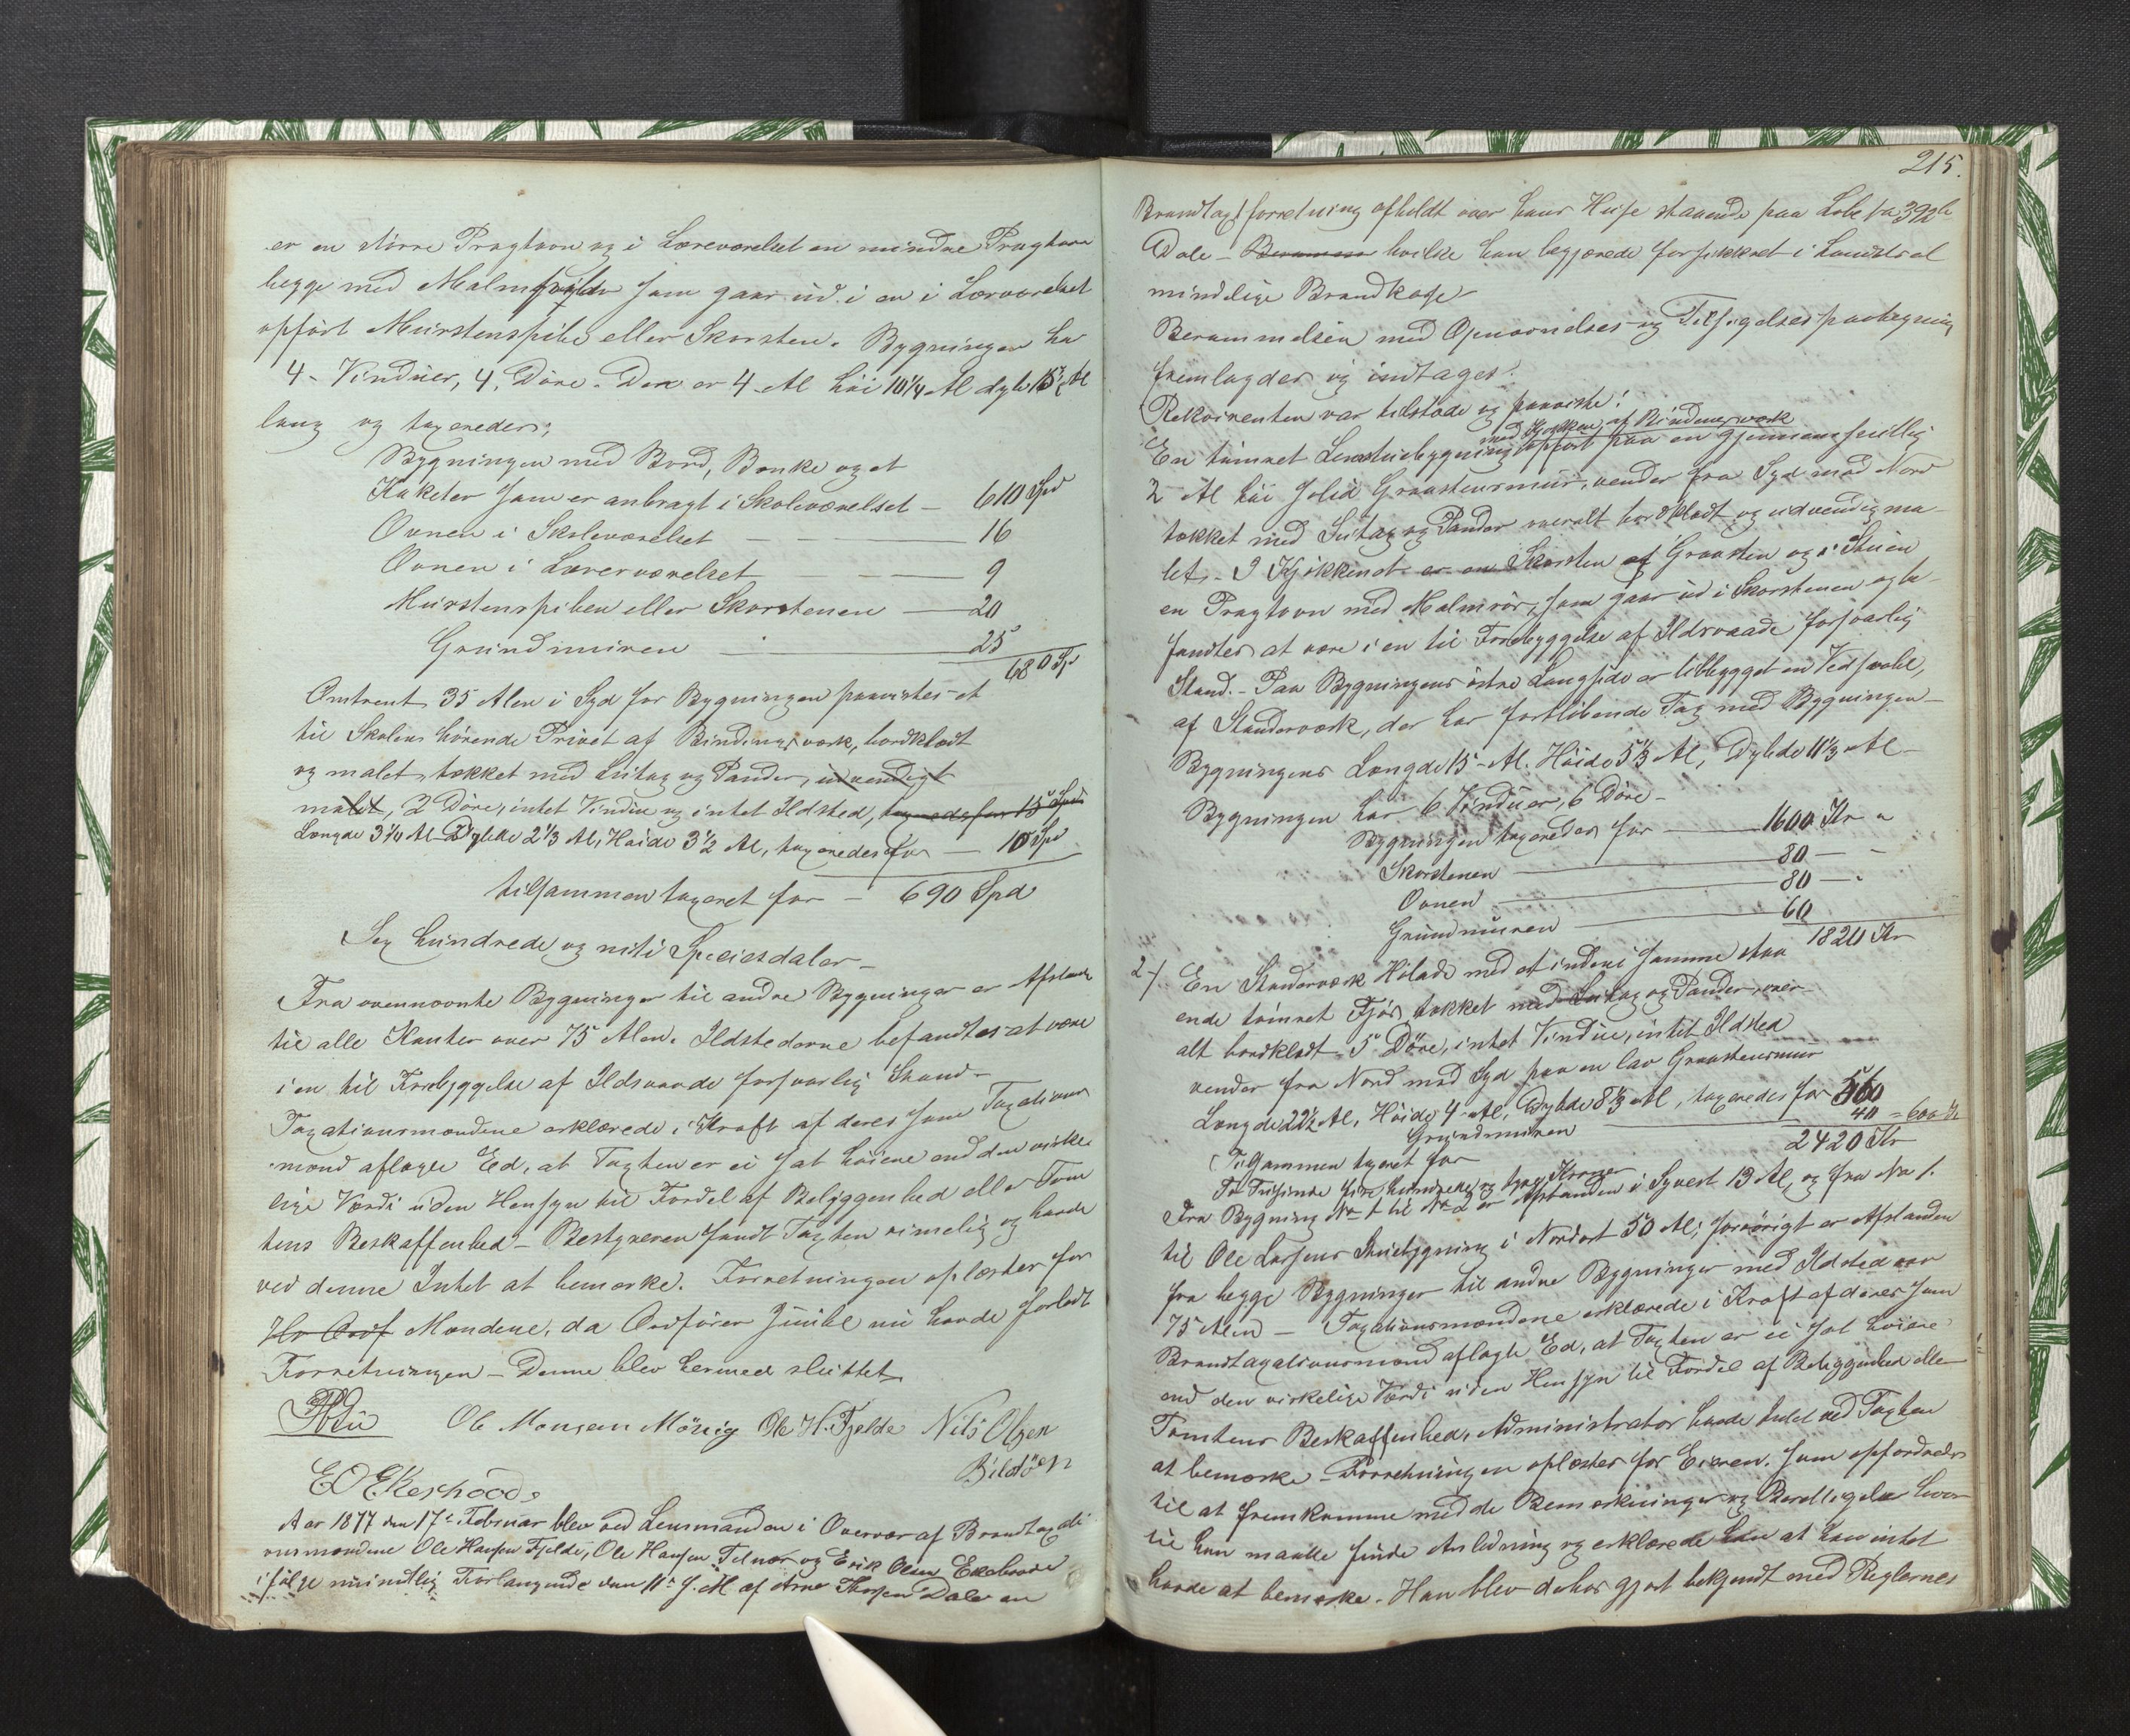 er en större Pragtovn og i Læreværelset en mindre Pragtovn
begge med Malm som gaar ud i en i Lærerværelset
opfört Murstenspibe eller Skorsten. Bygningen har
4 Vinduer, 4 Döre. Den er 4 Al höi 10 1/4 Al dyb 15 1/2 Al
lang og taxeredes;
Bygningen med Bord, Bænke og et
Katheter som er anbragt i Skoleværelset – 610 Spd
Ovnen i Skoleværelset — 16
Ovnen i Lærerværelset — 9
Murstenspiben eller Skorstenen — 20
Grundmuren — 25
680 Sp
Omtrent 35 Alen i Syd for Bygningen paavistes et
til Skolen hörende Privet af Bindingsværk, bordklædt
og malet, tækket med Sutag og Pander, udvendigt
malet, 2 Döre, intet Vindue og intet Ildsted, taxeredes for 15 Spd
Længde 3 1/4 Al Dybde 2 1/3 Al, Höide 3 1/2 Al, taxeredes for — 10 Spd
tilsammen taxeret for – 690 Spd
Sex hundrede og niti Speciesdaler –
Fra ovennævnte Bygninger til andre Bygninger er Afstand
til alle Kanter over 75 Alen. Ildstederne befandtes at være
i en til Forebyggelse af Ildsvaade forsvarlig Stand –
Taxationsmændene erklærede i Kraft af deres som Taxations
mænd aflagte Ed, at Taxten er ei sat höiere end den virke
lige Værdi uden Hensyn til Fordel af Beliggenhed eller Tom
tens Beskaffenhed – Bestyreren fandt Taxten rimelig og havde
ved denne Intet at bemærke. Forretningen oplæstes for
Hr Ordf Mændene, da Ordförer nu havde forladt
Forretningen – Denne blev hermed sluttet
Ole Monsen Mövig Ole H. Fjelde Nils Olsen
Bildöen
E O Ekerhovd
Aar 1877 den 17de Februar blev ved Lensmanden i Overvær af Brandtaxati
onsmændene Ole Hansen Fjelde, Ole Hansen Telnæs og Erik Olsen Ekerhovd
ifölge mundtlig Forlangende den 11te d. M. af Arne Thorsen Dale en
215.
Brandtaxtforretning afholdt over hans Huse staaende paa Löbe No 392b
Dale – hvilke han begjærede forsikkret i Landets al
mindelige Brandkasse
Berammelsen med Opnævnelses og Tilsigelsespaategning
fremlagdes og indtages:
Rekvirenten var tilstede og paaviste:
med Kjökken af Bindingsværk
En tömret Levestuebygning opfört paa en gjennemsnitlig
2 Al höi solid Graastensmur, vender fra Syd mod Nord
tækket med Sutag og Pander overalt bordklædt og udvendig ma-
let. – I Kjökkenet er en Skorsten af Graasten og i Stuen
en Pragtovn med Malmrör, som gaar ud i Skorstenen og be-
fandtes at være i en til Forebyggelse af Ildsvaade forsvarlig
Stand. – Paa Bygningens östre Langside er tilbygget en Vedsvale,
af Standerværk, der har fortlöbende Tag med Bygningen –
Bygningens Længde 15 Al. Höide 5 1/3 Al, Dybde 11 1/3 Al –
Bygningen har 6 Vinduer, 6 Döre –
Bygningen taxeredes for — 1600 Kr
Skorstenen — 80 –
Ovnen — 80 –
Grundmuren — 60
1820 Kr
2/ En Standerværk Hölade med et inden i samme staa
ende tömret Fjös, tækket med Sutag og Pander, over-
alt bordklædt. 5 Döre, intet Vindue, intet Ildsted
vender fra Nord mod Syd paa en lav Graastensmur
Længde 22 1/2 Al, Höide 4 Al, Dybde 8 1/3 Al, taxeredes for 560
Grundmuren 40 = 600 Kr
Tilsammen taxeret for 2420 Kr
To Tusinde fire hundrede og tyve Kroner
Fra Bygning No 1 til No 2 er Afstanden i Sydvest 13 Al, og fra No 1.
til Ole Larsens Stuebygning i Nordost 50 Al; forövrigt er Afstanden
fra begge Bygninger til andre Bygninger med Ildsted over
75 Alen – Taxationsmændene erklærede i Kraft af deres som
Brandtaxationsmænd aflagte Ed, at Taxten er ei sat höiere
end den virkelige Værdi uden Hensyn til Fordel af Beliggenhed eller
Tomtens Beskaffenhed, Administrator havde Intet ved Taxten
at bemærke – Forretningen oplæstes for Eieren. som opfordredes
til at fremkomme med de Bemærkninger og Berettigelser hvor
til han maatte finde Anledning og erklærede han at han intet
havde at bemærke. Han blev derhos gjort bekjendt med Reglernes